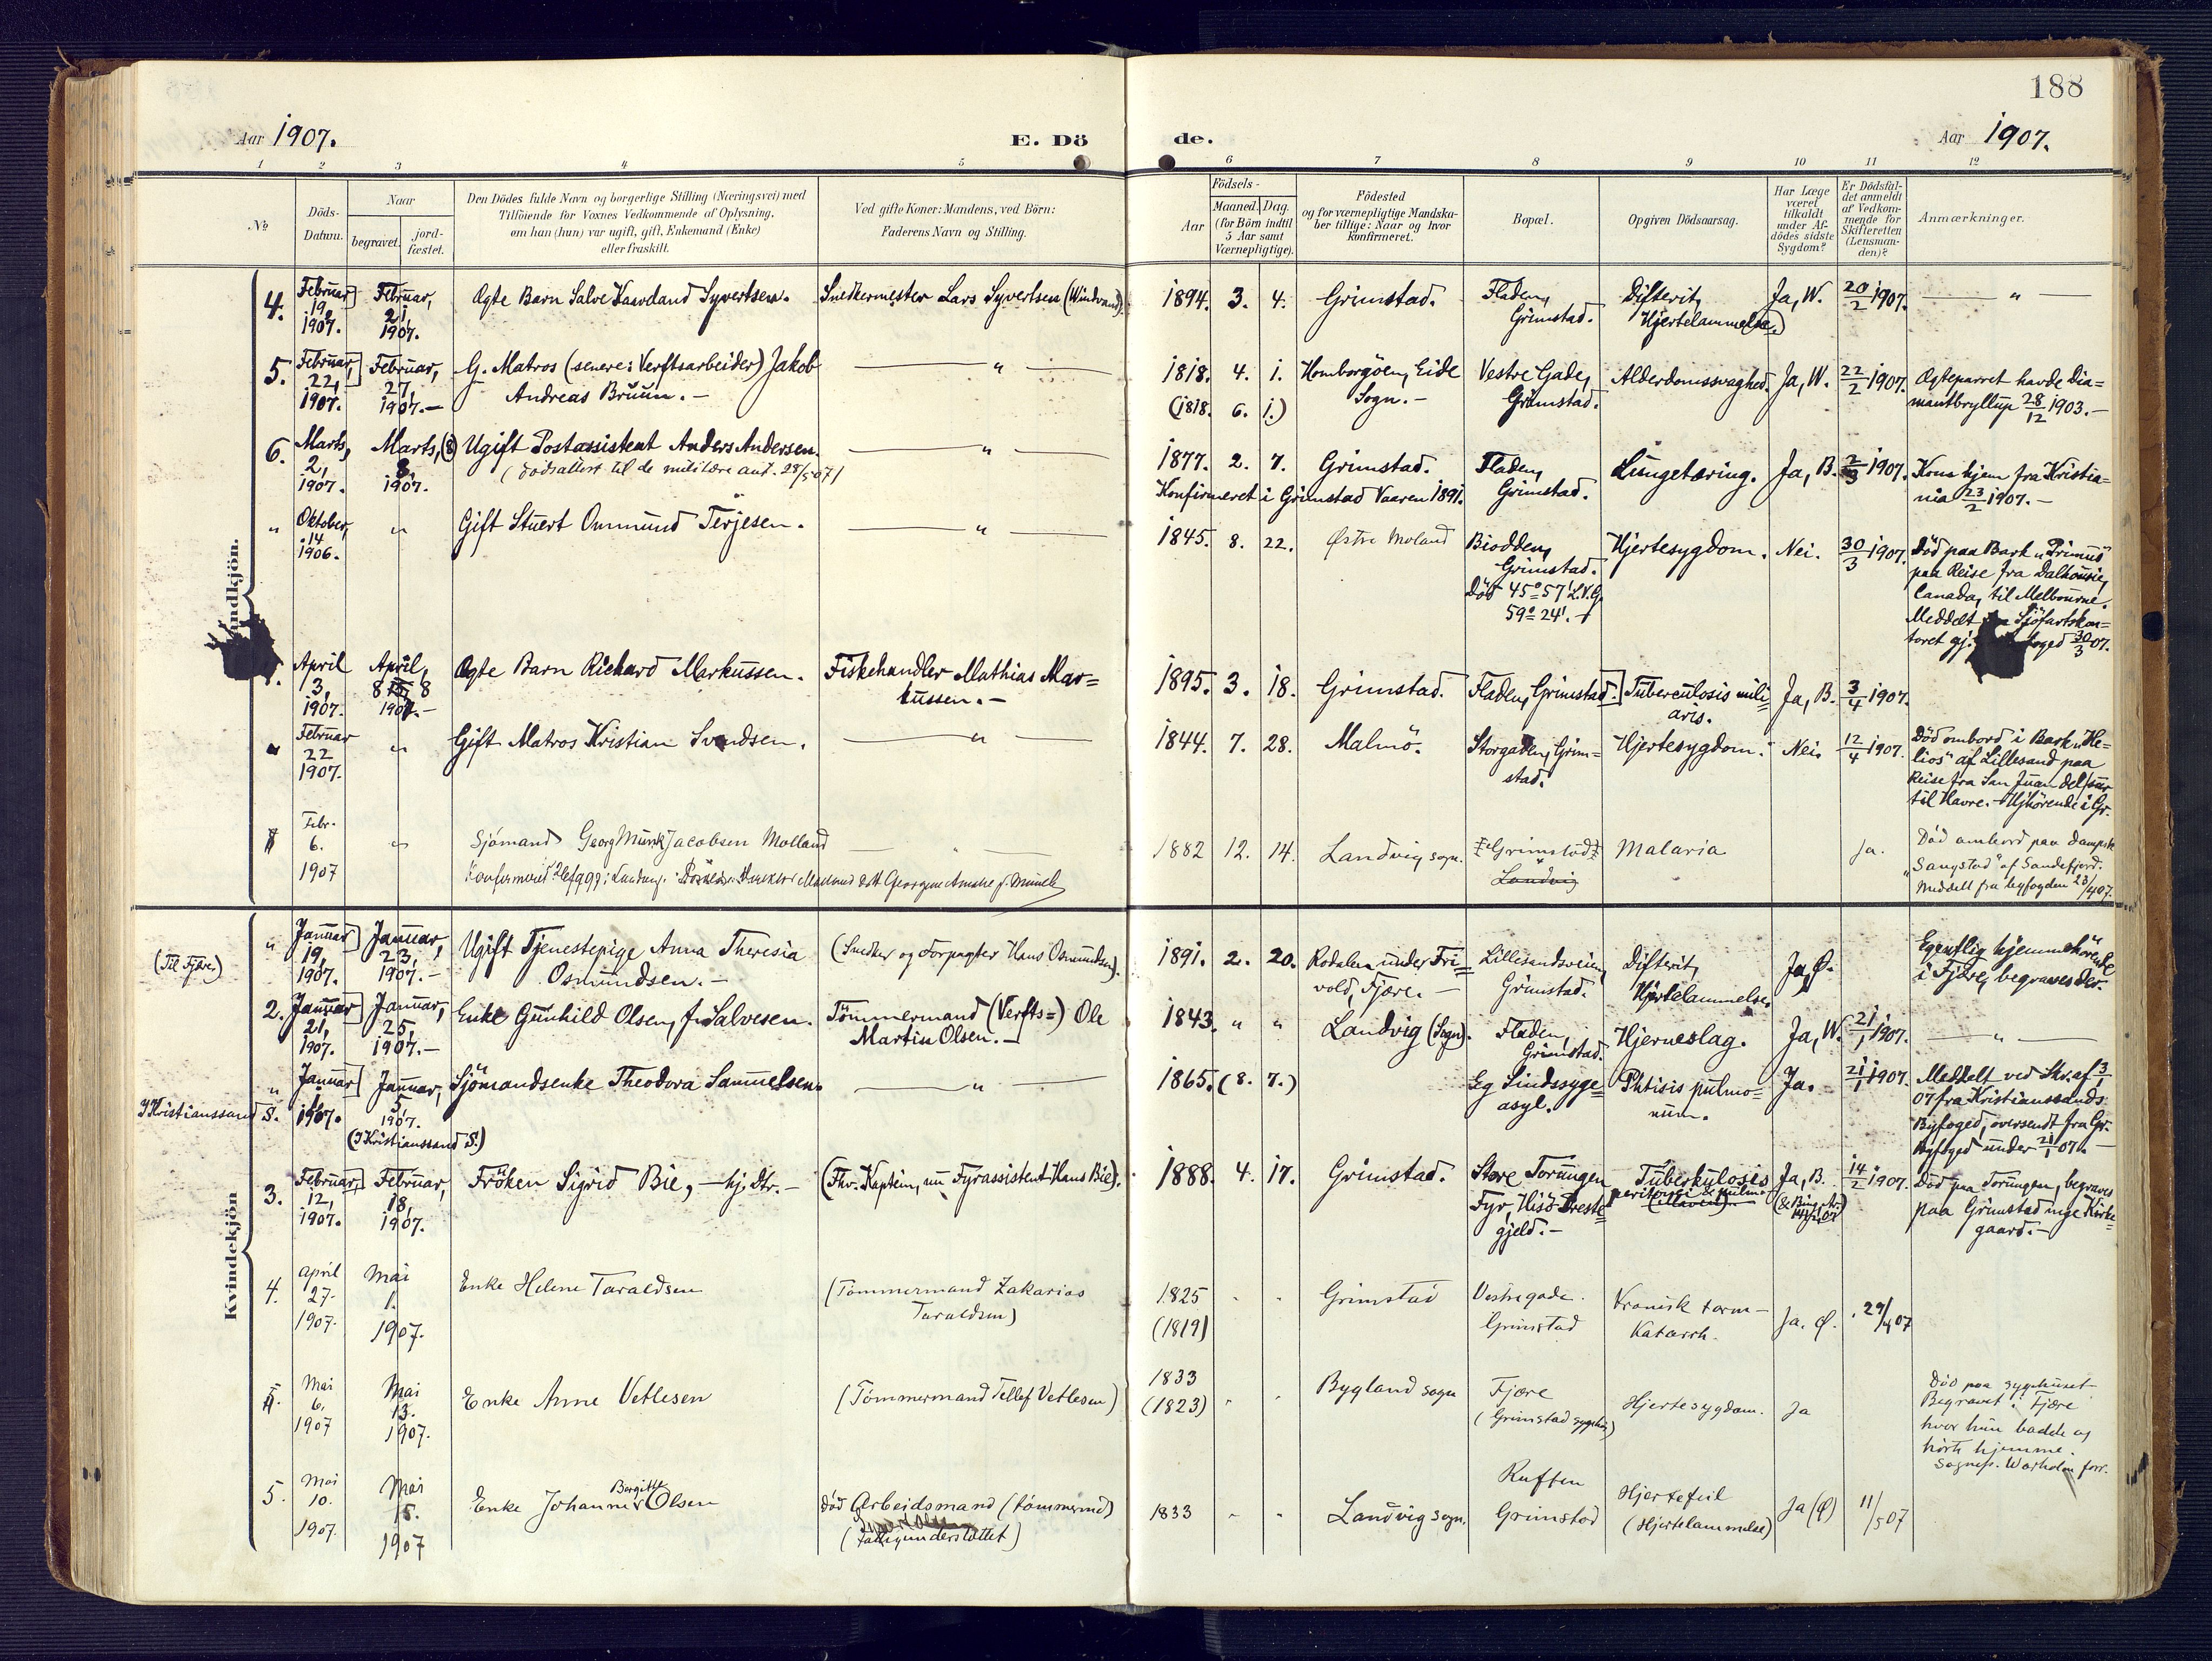 188
Aar 1907. E. Dö de. Aar 1907.
1 2 3 4 5 6 7 8 9 10 11 12
No
Döds-
Datum.
Naar
begravet.
jord-
fæstet.
Den Dödes fulde Navn og borgerlige Stilling (Næringsvei) med
Tilföiende for Voxnes Vedkommende af Oplysning,
om han (hun) var ugift, gift, Enkemand (Enke)
eller fraskilt.
Ved gifte Koner: Mandens, ved Börn:
Faderens Navn og Stilling.
Födsels-
Aar
Maaned. Dag.
(for Börn indtil
5 Aar samt
Værnepligtige).
Födested
og for værnepligtige Mandska-
ber tillige: Naar og hvor
konfirmeret.
Bopæl.
Opgiven Dödsaarsag.
Har Læge
været
tilkaldt
under Af-
dödes sidste
Sygdom?
Er Dödsfal-
det anmeldt
af Vedkom-
mende for
Skifteretten
(Lensman-
den)?
Anmærkninger.
4.
Februar
19,
1907.
Februar,
21,
1907.
Ægte Barn Salve Syvertsen.
Snedkermester Lars Syvertsen (Windrand).
1894. 3. 4.
Grimstad.
Fladen,
Grimstad.
Difterit,
Hjertelammelse
Ja, W.
20/2 1907.
— "
5.
Februar,
22,
1907.
Februar,
27,
1907.—
G. Matros (senere: Verftsarbeider) Jakob
Andreas Bruun. —
— " —
1818. 4. 1.
(1818. 6. 1.)
Homborgöen, Eide
Sogn. —
Vestre Gade,
Grimstad.
Alderdomssvaghed.
Ja, W.
22/2 1907.
Ægteparret havde Dia=
mantbryllup 28/12 1903. —
6.
Marts,
2,
1907.
Marts, (8)
8.
1907.
Ugift Postassistent Anders Andersen.
(Dødsattest til de militære aut. 28/5 07)
— " —
1877. 2. 7.
Grimstad.
Konfirmeret i Grimstad Vaaren 1891.
Fladen,
Grimstad.
Lungetæring.
Ja, B.
2/3 1907.
Kom hjem fra Kristia=
nia 23/2 1907. —
"
Oktober,
14
1906.
"
Gift Stuert Ommund Terjesen.
— " —
1845. 8. 22.
Østre Moland
Biodden,
Grimstad.
Död 45° 57' L.V.G.
59° 24'.
Hjertesygdom.
Nei.
30/3 1907.
Död paa Bark "Primus"
paa Reise fra Dalhousie,
Canada, til Melbourne.
Meddelt Sjöfartskon=
toret gj. 30/3 07.
April
3,
1907.
April,
8 8
1907. —
Ægte Barn Rickard Markussen.
Fiskehandler Mathias Mar=
kussen. —
1895. 3. 18.
Grimstad.
Fladen, Grimstad.
Tuberculosis mili=
aris.
Ja, B.
3/4 1907.
Februar
22
1907.
"
Gift Matros Kristian Svendsen.
— " —
1844. 7. 28.
Malmö.
Storgaden, Grim=
stad.
Hjertesygdom.
Nei.
12/4 1907.
Död ombord i Bark "He=
lios" af Lillesand paa
Reise fra San Juan del sur
til Havre. — Hjhörende i Gr.
Febr.
6.
1907
"
Sjömand Georg Munk Jacobsen Molland
1882 12. 14.
Landvig sogn.
Grimstad
Landvig
Malaria
Ja.
Død ombord paa Dampsk
"Sangstad" af Sandefjord.
Meddelt fra byfogden 23/4 07.
Mandkjön.
Kvindekjön
(Til Fjære)
"
Januar
19,
1907.
Januar,
23,
1907. —
Ugift Tjenestepige Anna Theresia
Osmundsen. —
(Snedker og Forpagter Hans Osmundsen).
1891. 2. 20.
Rodalen under Fri=
vold, Fjære. —
Lillesandsveien,
Grimstad.
Difterit,
Hjertelammelse
Ja, Ø.
Egentlig hjemmehörende
i Fjære, begraves der.
2.
Januar
21,
1907.
Januar,
25,
1907. —
Enke Gunhild Olsen, f. Salvesen.
Tömmermand (Verfts=) Ole
Martin Olsen. —
1843. " "
Landvig (Sogn).
Fladen,
Grimstad.
Hjerneslag.
Ja, W.
21/1 1907.
— " —
"
I Kristianssand S.
Januar
1,
1907.
Januar,
5,
1907.
(I Kristianssand S.)
Sjömandsenke Theodora Samuelsen.
— " —
1865. (8. 7.)
Eg Sindssyge=
asyl.
Phtisis pulmo=
num.
Ja.
21/1 1907.
Meddelt ved Skr. af 3/1
07 fra Kristianssands
Byfoged, oversendt fra Gr.
Byfoged under 21/1 07. —
3.
Februar,
12,
1907.
Februar,
18,
1907.
Fröken Sigrid Bie, — hj. dtr. —
(Fhv. Kaptein, nu Fyrassistent Hans Bie).
1888. 4. 17.
Grimstad.
Store Torungen
Fyr, Hisö Preste=
gjeld. —
Tuberkulosis
Ja, B.
14/2 1907.
Död paa Torungen, begraves
paa Grimstad nye Kirke=
gaard. —
4.
April
27.
1907.
Mai
1.
1907.
Enke Helene Taraldsen
(Tömmermand Zakarias
Taraldsen)
1825
(1819)
Grimstad
Vestregade.
Grimstad
Kronisk tarm-
Katarrh.
Ja. Ø.
29/4 07
Mai
6.
1907
Mai
13.
1907.
Enke Anne Vetlesen
(Tömmermand Tellef Vetlesen)
1833
(1823)
Bygland sogn
Fjære
(Grimstad sygehus)
Hjertesygdom.
Ja
Död paa sygehuset.
Begravet i Fjære
hvor hun badde og
hörte hjemme.
5.
Mai
10.
1907.
Mai
15.
1907
Enke Johanne Bergitte Olsen
död Arbeidsmand (tömmermd)
(Fattigunderstöttet)
1833
Landvig sogn.
Grimstad
Hjertefeil
(Hjertelammelse)
Ja (Ø)
11/5 07